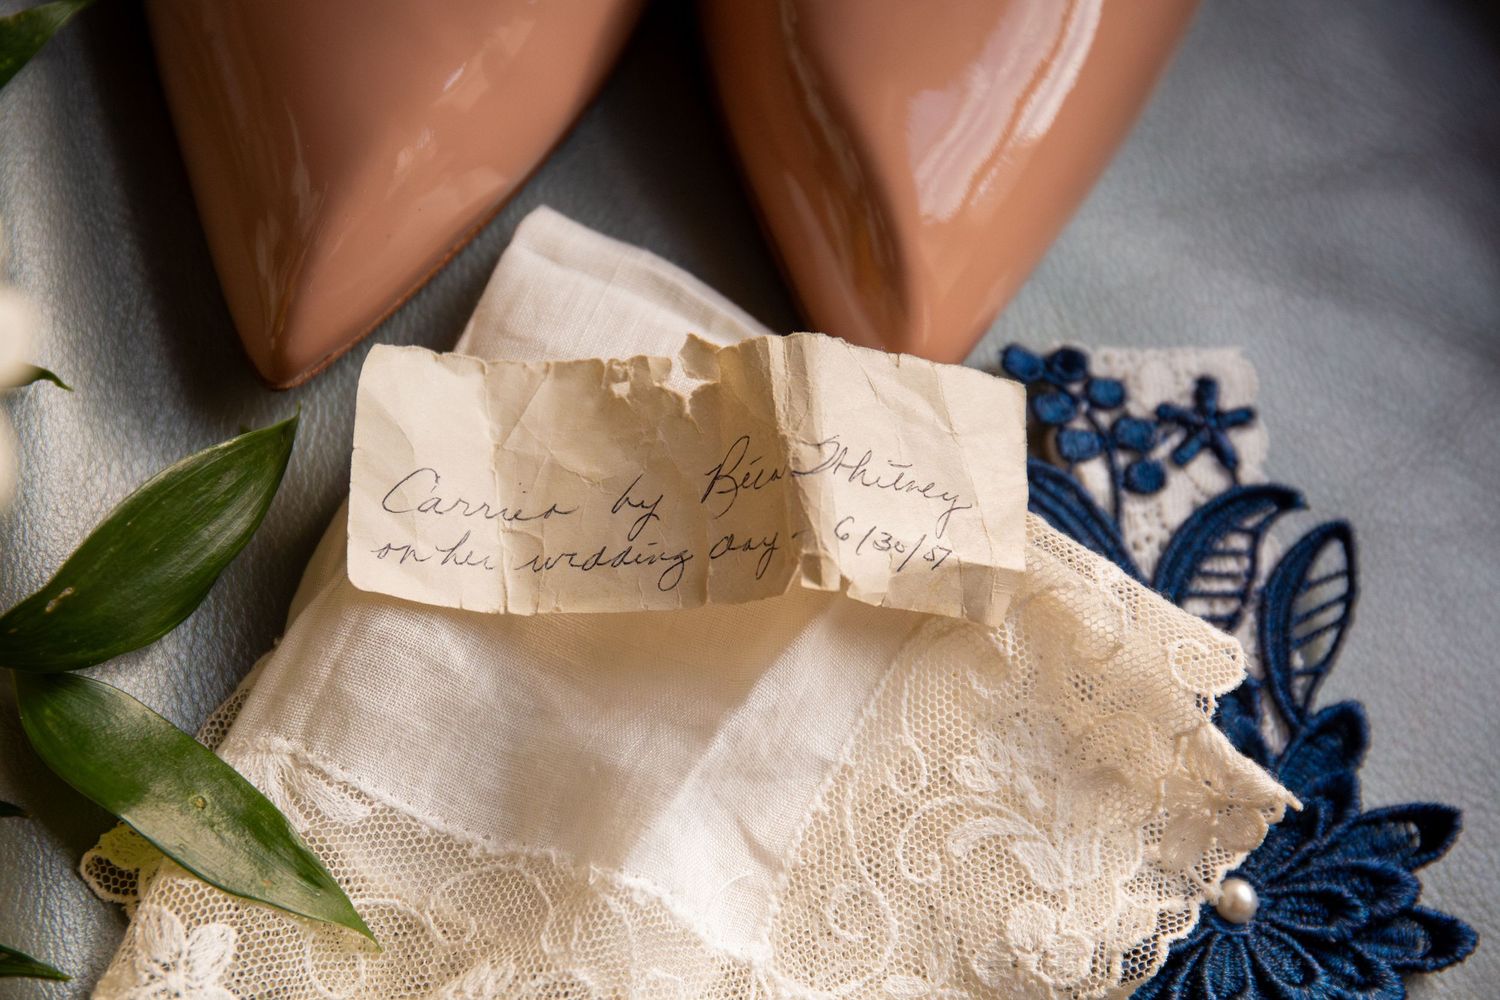 Carried by Rita Whitney
on her wedding day - 6/30/57